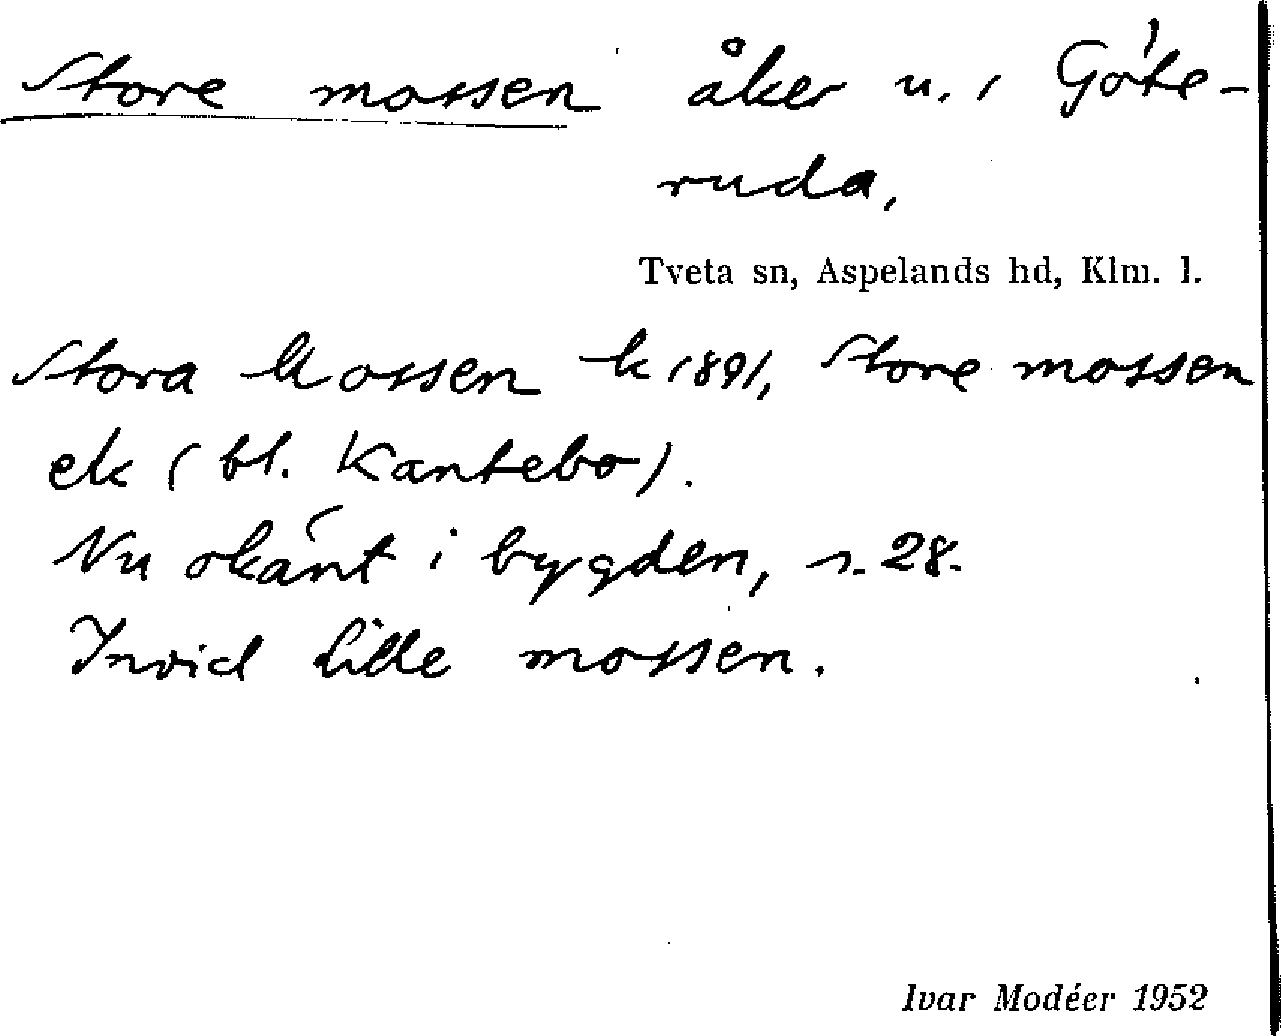 Store mossen åker u. 1 Göte-
ruda,
Tveta sn, Aspelands hd, Klm. l.
Stora Mossen k 1891, Store mossen
ek (bl. Kantebo).
Nu okänt i bygden, s. 28.
Invid Lille mossen.
Ivar Modéer 1952